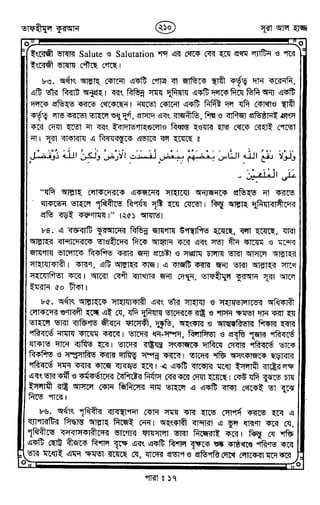 তাফহীমুল কুরআন
২১০
সূরা আল হাজ্জ
ইংরেজী ভাষার Salute ও Salutation শব্দ এর থেকে বের হয়ে প্রথমে ল্যাটিন ও পরে
ইংরেজী ভাষায় পৌঁছে গেছে।
৮৩. অর্থাৎ আল্লাহ কোনো একটি গোত্র বা জাতিকে স্থায়ী কর্তৃত্ব দান করেননি,
এটি তাঁর বিরাট অনুগ্রহ। বরং বিভিন্ন সময় দুনিয়ায় একটি দলকে দিয়ে তিনি অন্য একটি
দলকে প্রতিহত করতে থেকেছেন। নয়তো কোনো একটি নির্দিষ্ট দল যদি কোথাও স্থায়ী
কর্তৃত্ব লাভ করতো তাহলে শুধু দূর্গ, প্রাসাদ এবং রাজনীতি, শিল্প ও বাণিজ্য প্রতিষ্ঠানই ধ্বংস
করে দেয়া হতো না বরং ইবাদাতগাহগুলোও বিধ্বস্ত হওয়ার হাত থেকে রেহাই পেতো
না। সূরা বাকারায় এ বিষয়বস্তুকে এভাবে বলা হয়েছে :
وَلَوْلَا دَفْعُ اللَّهِ النَّاسَ بَعْضَهُمْ بِبَعْضٍ لَفَسَدَتِ الْأَرْضُ وَلَكِنَّ اللَّهَ ذُو فَضْلٍ
عَلَى الْعَالَمِينَ -
"যদি আল্লাহ লোকদেরকে একজনের সাহায্যে অন্যজনকে প্রতিহত না করতে
থাকতেন তাহলে পৃথিবীতে বিপর্যয় সৃষ্টি হয়ে যেতো। কিন্তু আল্লাহ দুনিয়াবাসীদের
প্রতি বড়ই করুণাময়।" (২৫১ আয়াত)
৮৪. এ বক্তব্যটি কুরআনের বিভিন্ন জায়গায় উপস্থাপিত হয়েছে, বলা হয়েছে, যারা
আল্লাহর বান্দাদেরকে তাওহীদের দিকে আহবান করে এবং সত্য দীন কায়েম ও মন্দের
জায়গায় ভালোকে বিকশিত করার জন্য প্রচেষ্টা ও সংগ্রাম চালায় তারা আসলে আল্লাহর
সাহায্যকারী। কারণ, এটি আল্লাহর কাজ। এ কাজটি করার জন্য তারা আল্লাহর সাথে
সহযোগিতা করে। আরো বেশী ব্যাখ্যার জন্য দেখুন, তাফহীমুল কুরআন সূরা আলে
ইমরান ৫০ টীকা।
৮৫. অর্থাৎ আল্লাহকে সাহায্যকারী এবং তাঁর সাহায্য ও সহায়তালাভের অধিকারী
লোকদের গুণাবলী হচ্ছে এই যে, যদি দুনিয়ায় তাদেরকে রাষ্ট্র ও শাসন ক্ষমতা দান করা হয়
তাহলে তারা ব্যক্তিগত জীবনে ফাসেকী, দুষ্কৃতি, অহংকার ও আত্মম্ভরিতার শিকার হবার
পরিবর্তে নামায কায়েম করবে। তাদের ধন-সম্পদ, বিলাসিতা ও প্রবৃত্তি পূজার পরিবর্তে
যাকাত দানে ব্যয়িত হবে। তাদের রাষ্ট্রযন্ত্র সৎকাজকে দাবিয়ে দেবার পরিবর্তে তাকে
বিকশিত ও সম্প্রসারিত করার দায়িত্ব সম্পন্ন করবে। তাদের শক্তি অসৎকাজকে ছড়াবার
পরিবর্তে দমন করার কাজে ব্যবহৃত হবে। এ একটি বাক্যের মধ্যে ইসলামী রাষ্ট্রের লক্ষ্য
এবং তার কর্মী ও কর্মকর্তাদের বৈশিষ্ট্যের নির্যাস বের করে দেয়া হয়েছে। কেউ যদি বুঝতে চায়
ইসলামী রাষ্ট্র আসলে কোন্ জিনিসের নাম তাহলে এ একটি বাক্য থেকেই তা বুঝে
নিতে পারে।
৮৬. অর্থাৎ পৃথিবীর ব্যবস্থাপনা কোন্ সময় কার হাতে সোপর্দ করতে হবে এ
ব্যাপারটির সিদ্ধান্ত আল্লাহ নিজেই নেন। অহংকারী বান্দারা এ ভুল ধারণা করে যে,
পৃথিবীতে বসবাসকারীদের ভাগ্যের ফায়সালা তারা নিজেরাই করে। কিন্তু যে শক্তি
একটি ছোট্ট বীজকে বিশাল বৃক্ষে এবং একটি বিশাল বৃক্ষকে শুষ্ক কাষ্ঠখণ্ডে পরিণত করে
তার মধ্যেই এমন ক্ষমতা রয়েছে যে, যাদের প্রতাপ ও প্রতিপত্তি দেখে লোকেরা মনে করে
পারা : ১৭